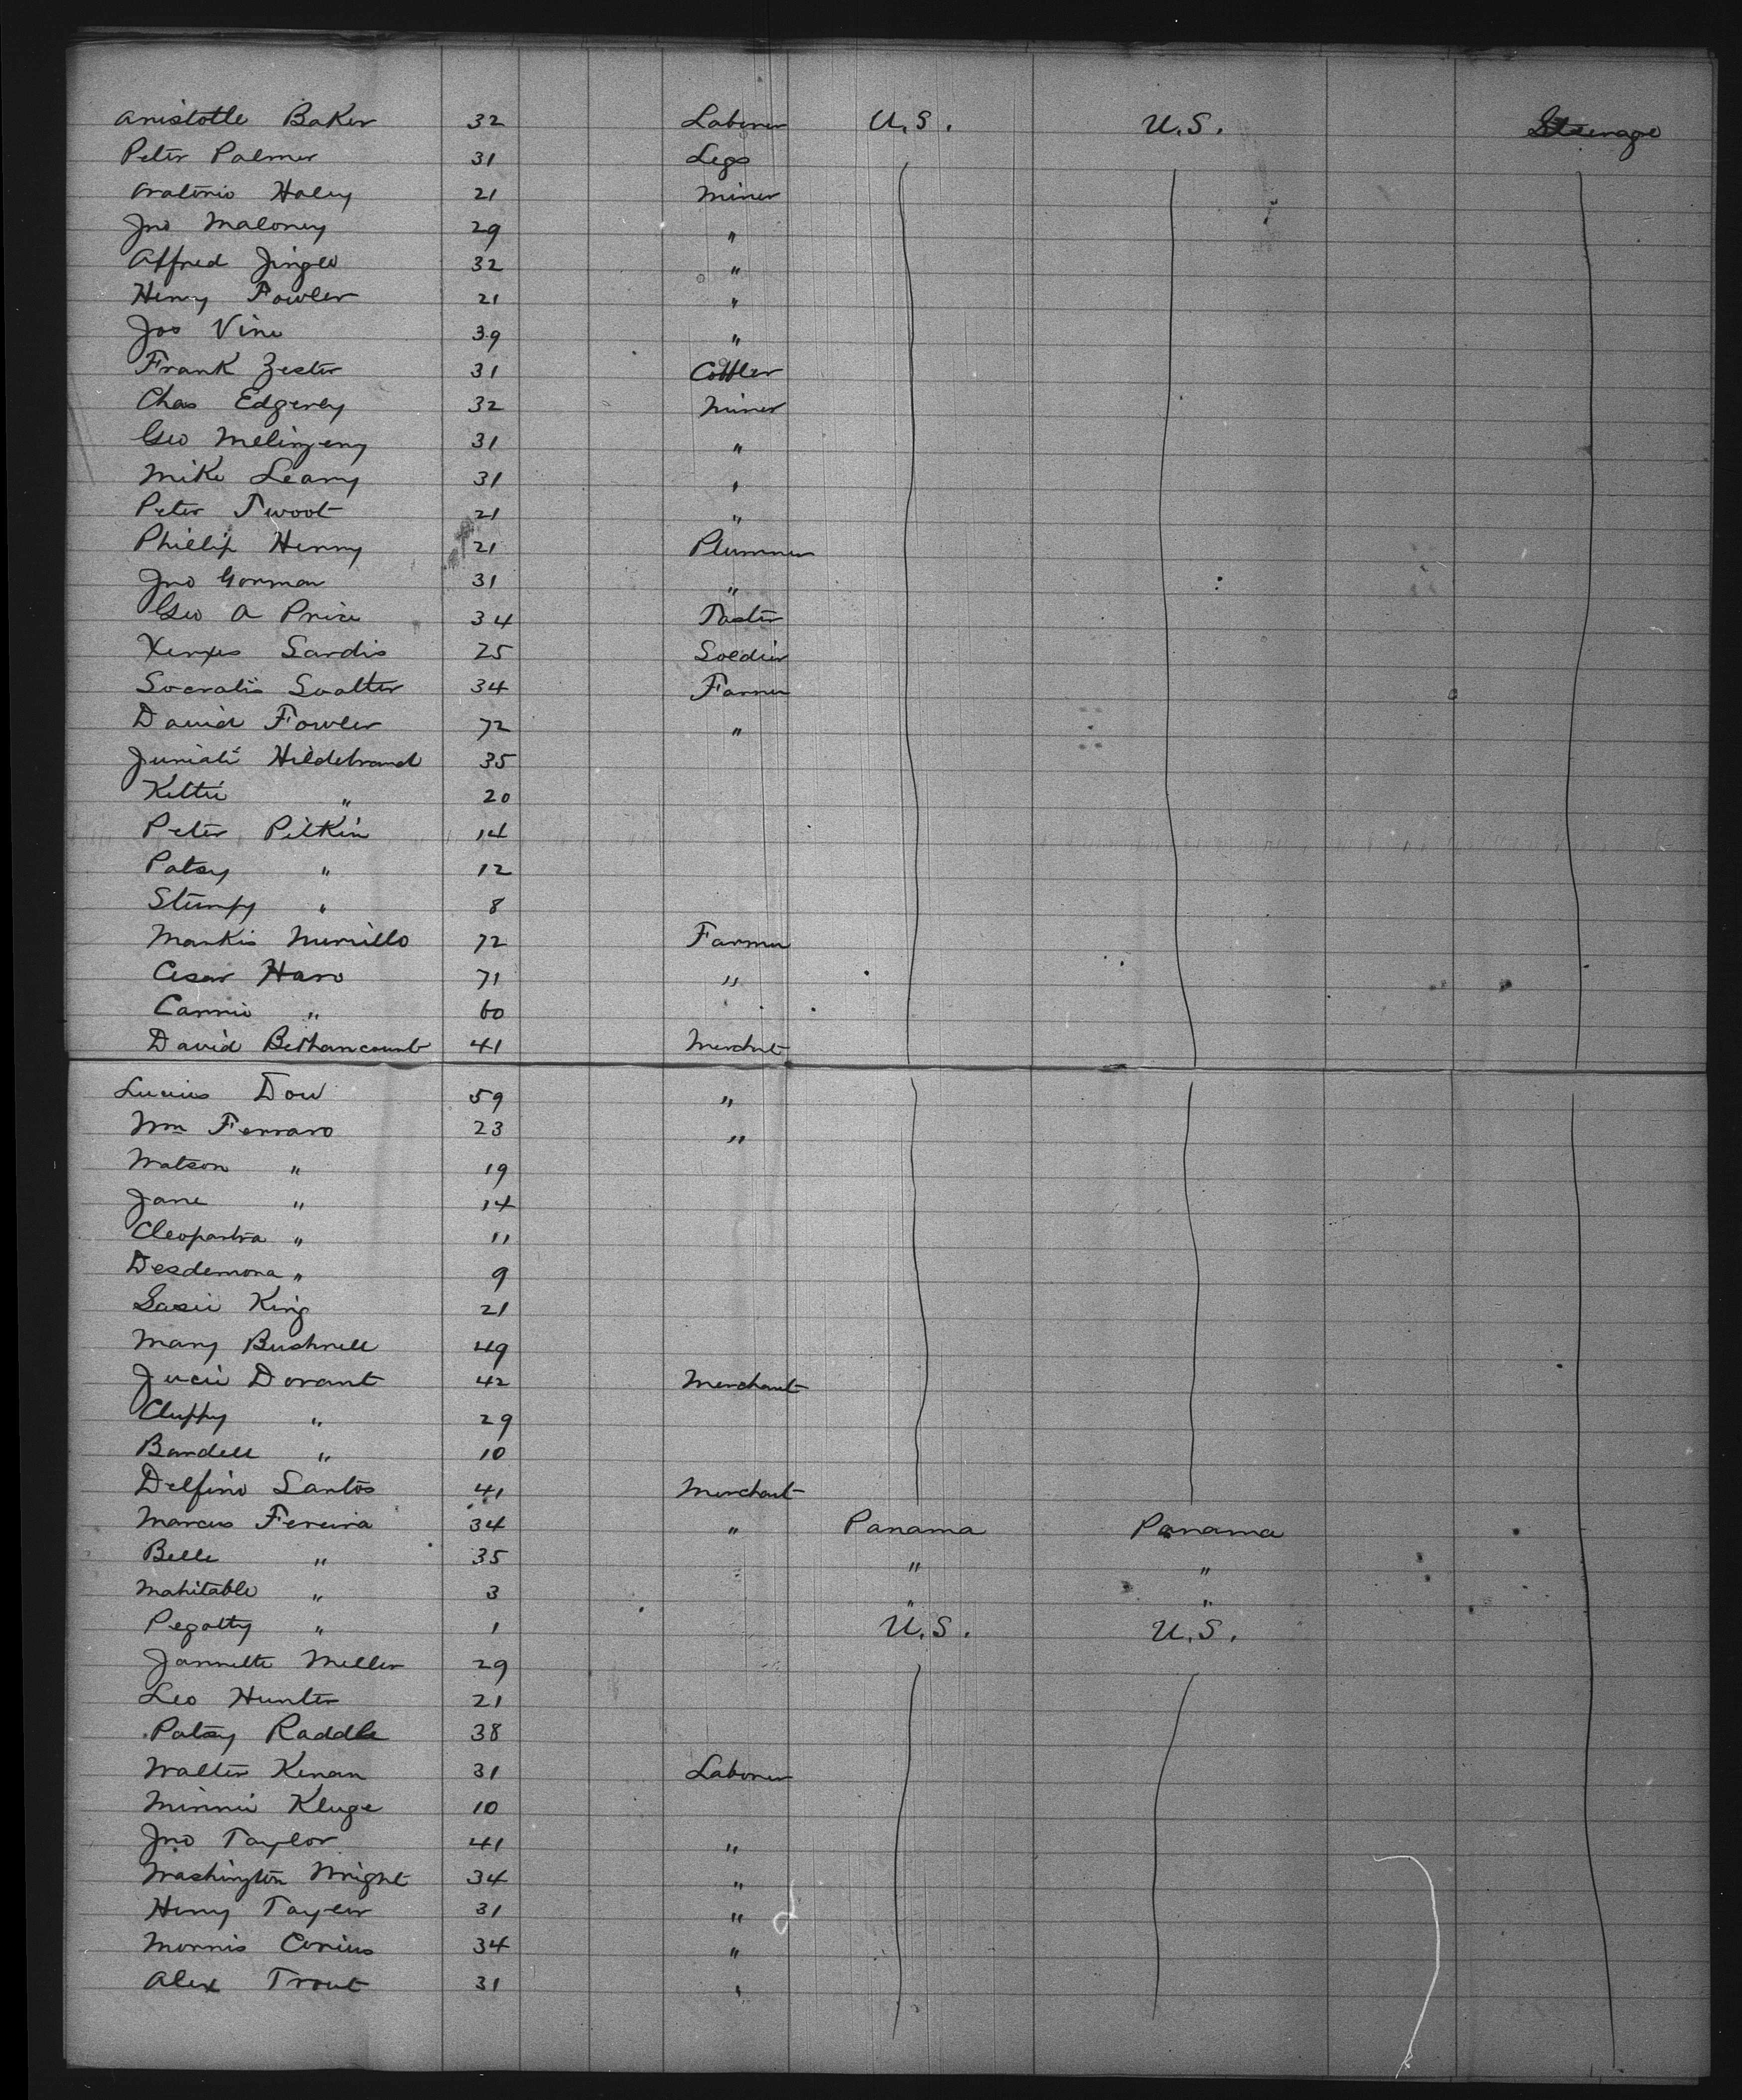 Aristotle Baker 32 Laborer U.S. U.S. Steerage
Peter Palmer 31 Legs
Oratorio Haley 21 Miner
Jno Maloney 29 "
Alfred Jingle 32 "
Henry Fowler 21 "
Jos Vine 39 "
Frank Zester 31 Cobbler
Chas Edgerly 32 Miner
Geo 31 "
Mike Leary 31 "
Peter Twoot 21 "
Phillip Henry 21 Plummer
Jno Gorman 31 "
Geo A Price 34 Taster
Xerxes Sardis 25 Soldier
Socratis Soalter 34 Farmer
David Fowler 72 "
Hildebrand 35
Kittie " 20
Peter Pitkin 14
Patsy " 12
Stumpy " 8
Markis Murrillo 72 Farmer
Cesar Haro 71 "
Cannie " 60
David Bethancourt 41 Merchnt
Lucius Dow 59 "
Wm Ferraro 23 "
Watson " 19
Jane " 14
Cleopartra " 11
Desdemona " 9
King 21
Mary Bushnell 49
Dorant 42 Merchant
Cluppy " 29
Bardell " 10
Delfino Santos 41 Merchant
Marcus Fereira 34 " Panama Panama
Belle " 35 " "
Mahitable " 3 " "
Pegotty " 1 U.S. U.S.
Jannette Miller 29
Leo Hunter 21
Patsy Raddle 38
Walter Kenan 31 Laborer
Minnie Kluge 10
Jno Taylor 41 "
Washington Wright 34 "
Henry Taylor 31 "
Morris 34 "
Alex Trout 31 "